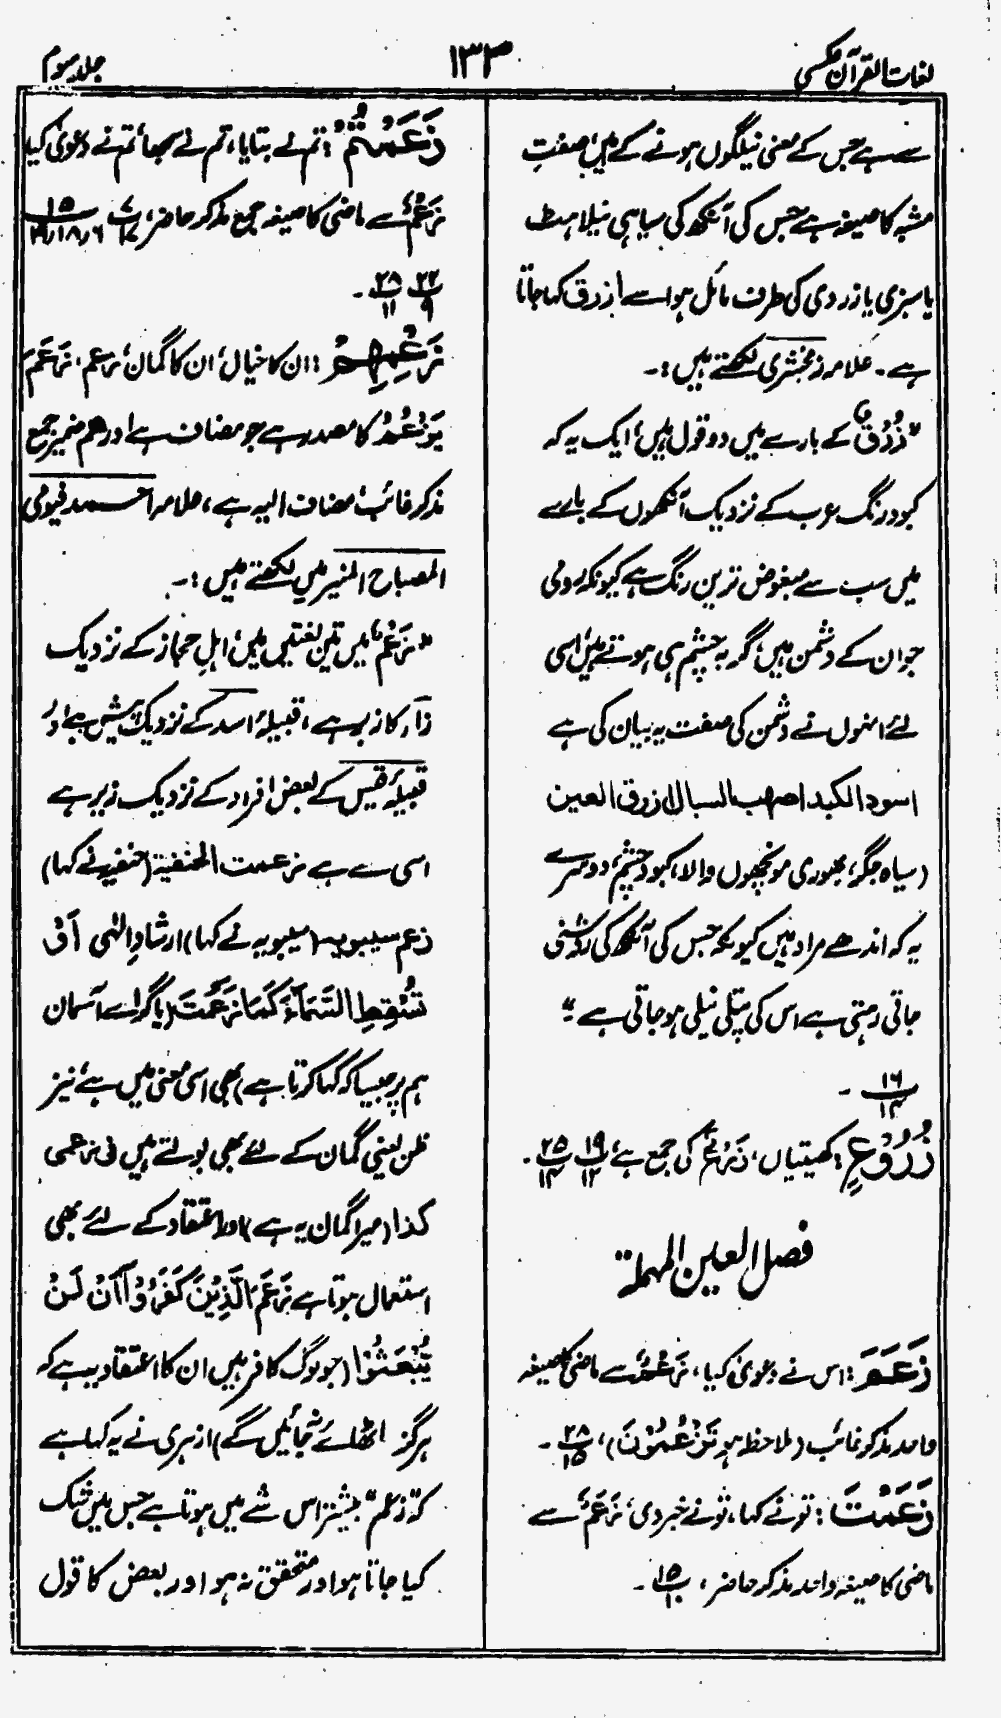 لغات القرآن عکسی
۱۳۴
جلد سوم
سے ہے جس کے معنی نیلگوں ہونے کے ہیں، صفتِ
مشبہ کا صیغہ ہے جس کی آنکھ کی سیاہی نیلاہٹ
یا سبزی یا زردی کی طرف مائل ہو اسے ازرق کہا جاتا
ہے۔ علامہ زمخشری لکھتے ہیں:۔
”زُرْقٌ کے بارے میں دو قول ہیں، ایک یہ کہ
کبود رنگ عرب کے نزدیک آنکھوں کے بارے
میں سب سے مبغوض ترین رنگ ہے کیونکہ رومی
جو ان کے دشمن ہیں، گربہ چشم ہی ہوتے ہیں، اسی
لئے انہوں نے دشمن کی صفت یہ بیان کی ہے
اسود الکبد اصہب السبال ازرق العین
(سیاہ جگر، بھوری مونچھوں والا، کبود چشم، دوسرے
یہ کہ اندھے مراد ہیں کیونکہ جس کی آنکھ کی روشنی
جاتی رہتی ہے اس کی پتلی نیلی ہو جاتی ہے“
۱۶/۱۴ ۔
زُرُوْعٍ: کھیتیاں، زَرْعٌ کی جمع ہے، ۱۹/۱۲ ۲۵/۱۴ ۔
فصل العین المہملۃ
زَعَمَ: اس نے دعویٰ کیا، زَعْمٌ سے ماضی کا صیغہ
واحد مذکر غائب (ملاحظہ ہو تَزْعُمُوْنَ)، ۲۸/۱۵ ۔
زَعَمْتَ: تو نے کہا، تو نے خبر دی، زَعْمٌ سے
ماضی کا صیغہ واحد مذکر حاضر، ۱۵/۱۰ ۔
زَعَمْتُمْ: تم نے بتایا، تم نے سمجھا، تم نے دعویٰ کیا،
زَعْمٌ سے ماضی کا صیغہ جمع مذکر حاضر، ۷/۱۷ ۱۵/
۲۲/۹ ۲۸/۱۱ ۔
زَعْمِهِمْ: ان کا خیال، ان کا گمان، زعم، زَعَمَ
یَزْعُمُ کا مصدر ہے جو مضاف ہے اور ھم ضمیر جمع
مذکر غائب، مضاف الیہ ہے، علامہ احمد فیومی
المصباح المنیر میں لکھتے ہیں:۔
”زَعْم“ میں تین لغتیں ہیں، اہلِ حجاز کے نزدیک
زآر کا زبر ہے، قبیلۂ اسد کے نزدیک پیش ہے اور
قبیلۂ قیس کے بعض افراد کے نزدیک زیر ہے
اسی سے ہے زعمت الحنفیۃ (حنفیہ نے کہا)
زعم سیبویہ (سیبویہ نے کہا) ارشادِ الٰہی اَوْ
تُسْقِطَ السَّمَآءَ كَمَا زَعَمْتَ (یا گرا دے آسمان
ہم پر جیسا کہ کہا کرتا ہے) بھی اسی معنی میں ہے، نیز
ظن یعنی گمان کے لئے بھی بولتے ہیں فی زعمی
کذا (میرا گمان یہ ہے) اور اعتقاد کے لئے بھی
استعمال ہوتا ہے زَعَمَ الَّذِیْنَ كَفَرُوْا اَنْ لَّنْ
یُّبْعَثُوْا (جو لوگ کافر ہیں ان کا اعتقاد یہ ہے کہ
ہرگز اٹھائے نہ جائیں گے) ازہری نے یہ کہا ہے
کہ ”زعم“ بیشتر اس شے میں ہوتا ہے جس میں شک
کیا جاتا ہو اور متحقق نہ ہو اور بعض کا قول